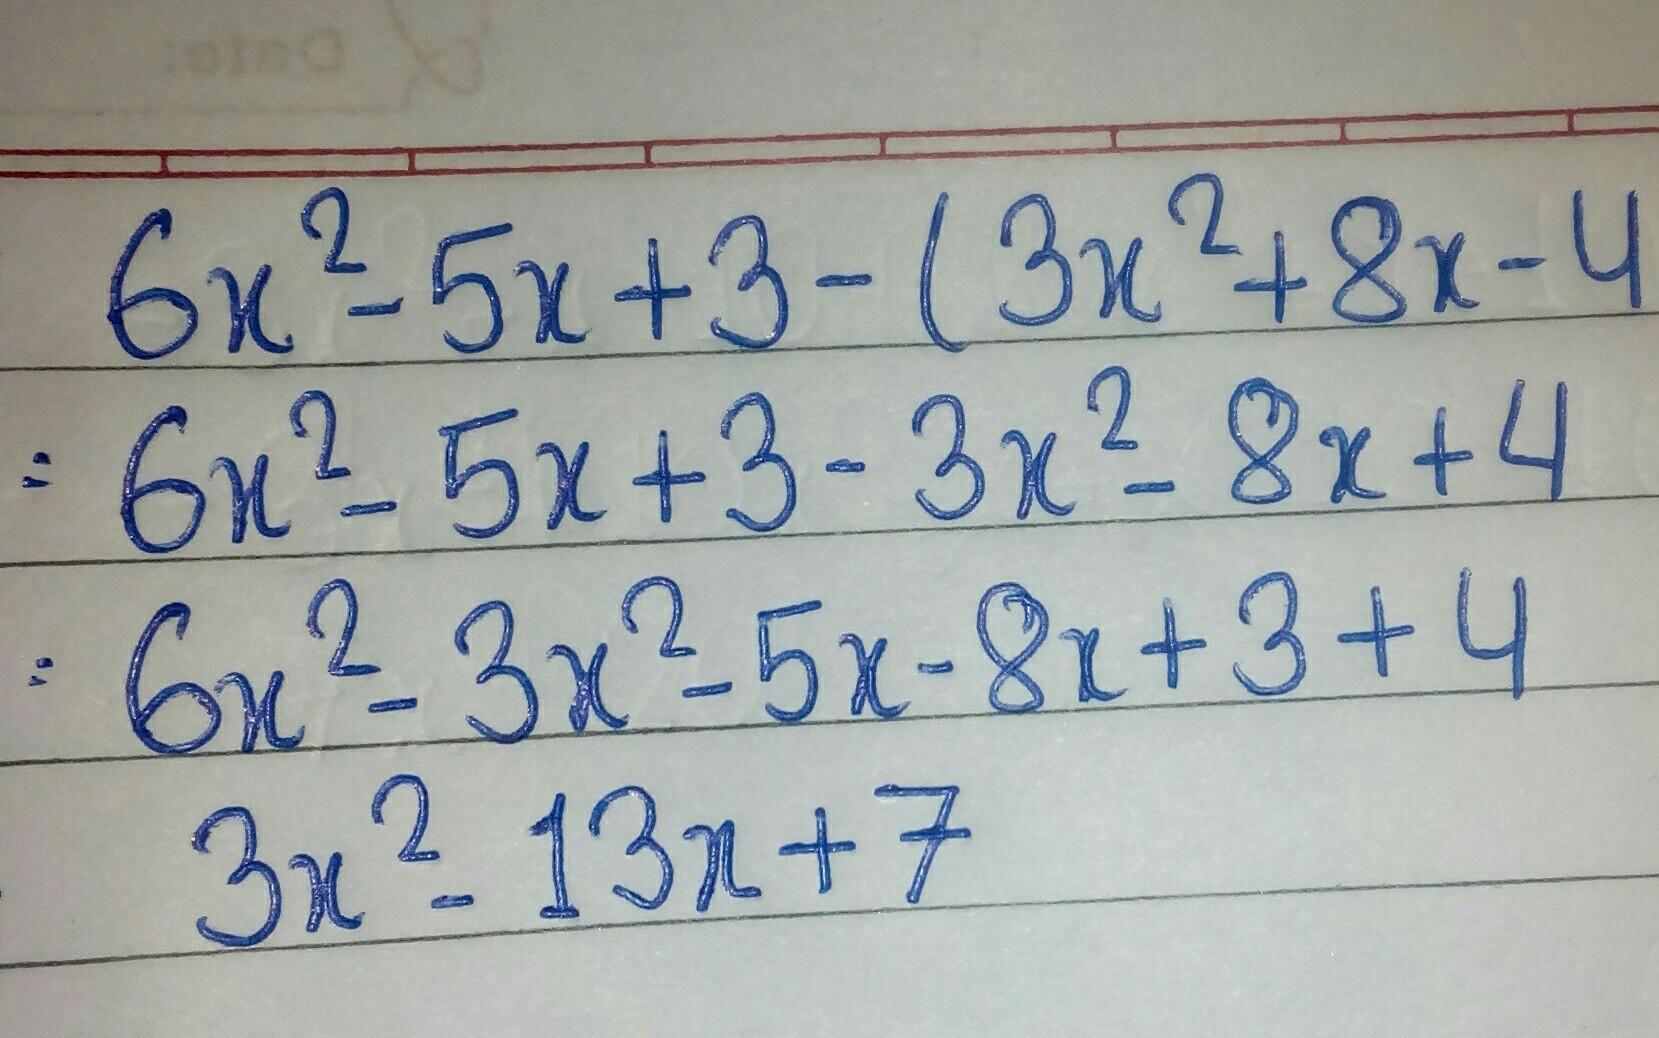 Date:
6x²-5x+3-(3x²+8x-4
= 6x²-5x+3-3x²-8x+4
= 6x²-3x²-5x-8x+3+4
3x²-13x+7